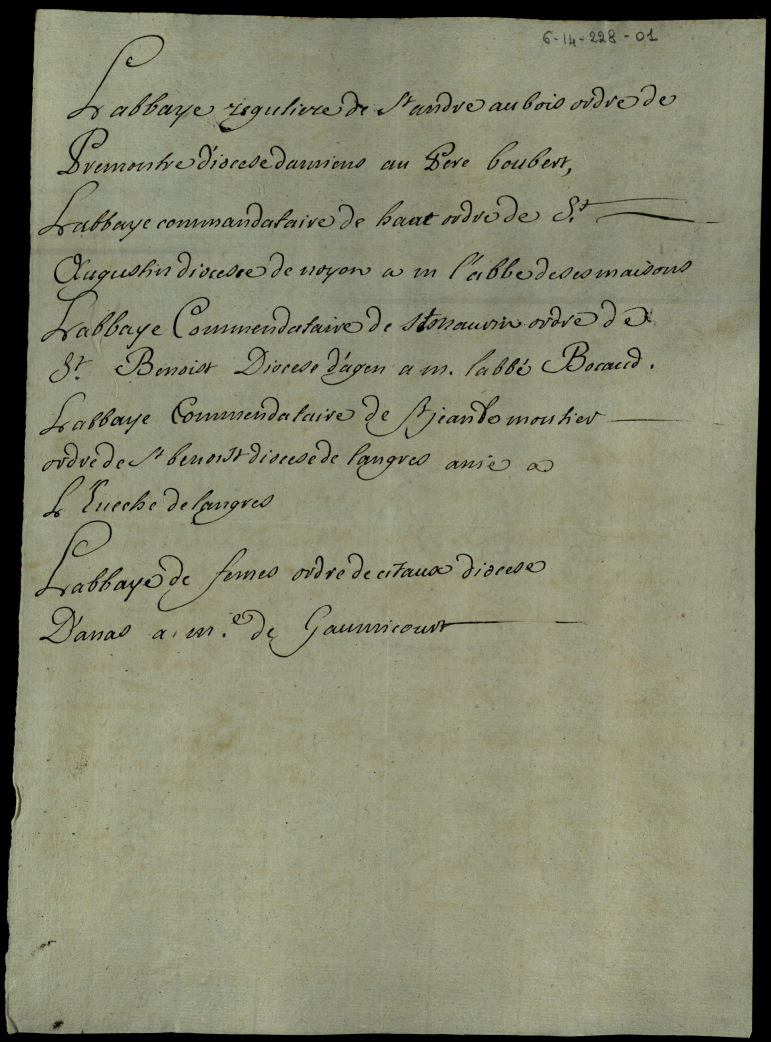 6-14-228-01
L'abbaye reguliere de St andre au bois ordre de
Premontre diocese damiens au Pere boubert,
L'abbaye commandataire de haat ordre de St.
Augustin diocese de noyon a m l'abbe desesmaisons
L'abbaye Commendataire de st maurin ordre de
St. Benoist Diocese d'agen a m. labbé Bocaud.
L'abbaye Commendataire de St jean de moutier
ordre de St benoist diocese de langres unie a
L'Eveche de langres
L'abbaye de femes ordre de citaux diocese
D'arras a m.e de Gaumicourt